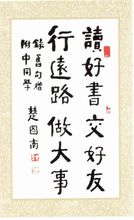 讀好書交好友
行遠路做大事
錄舊句贈
附中同學
楚图南